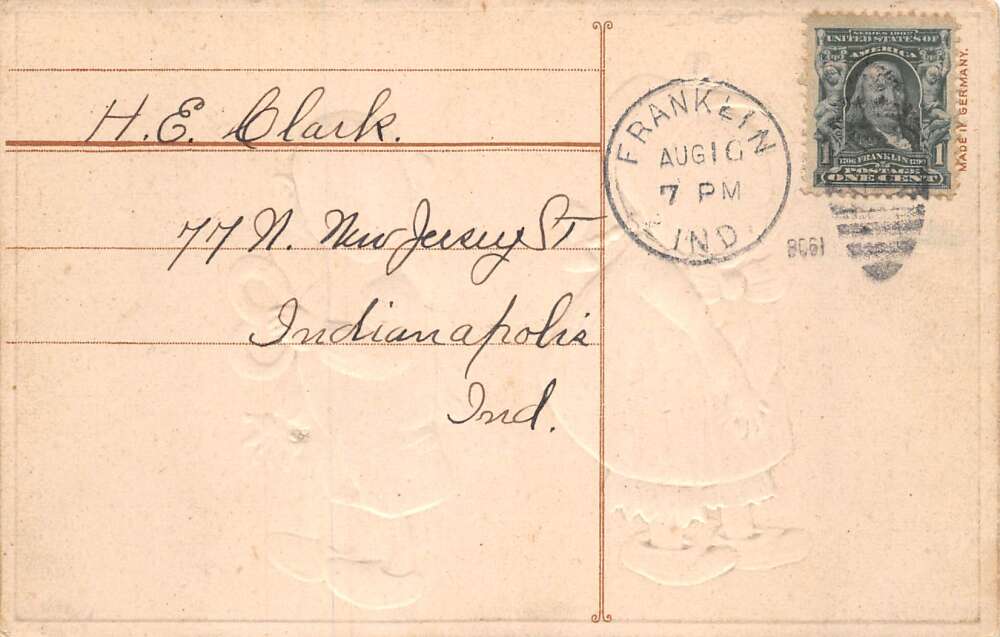 SERIES 1902
UNITED STATES OF
AMERICA
1706 FRANKLIN 1790
POSTAGE
1 ONE CENT 1
MADE IN GERMANY.
FRANKLIN
AUG 10
7 PM
IND.
1908
H. E. Clark.
77 N. New Jersey St
Indianapolis
Ind.